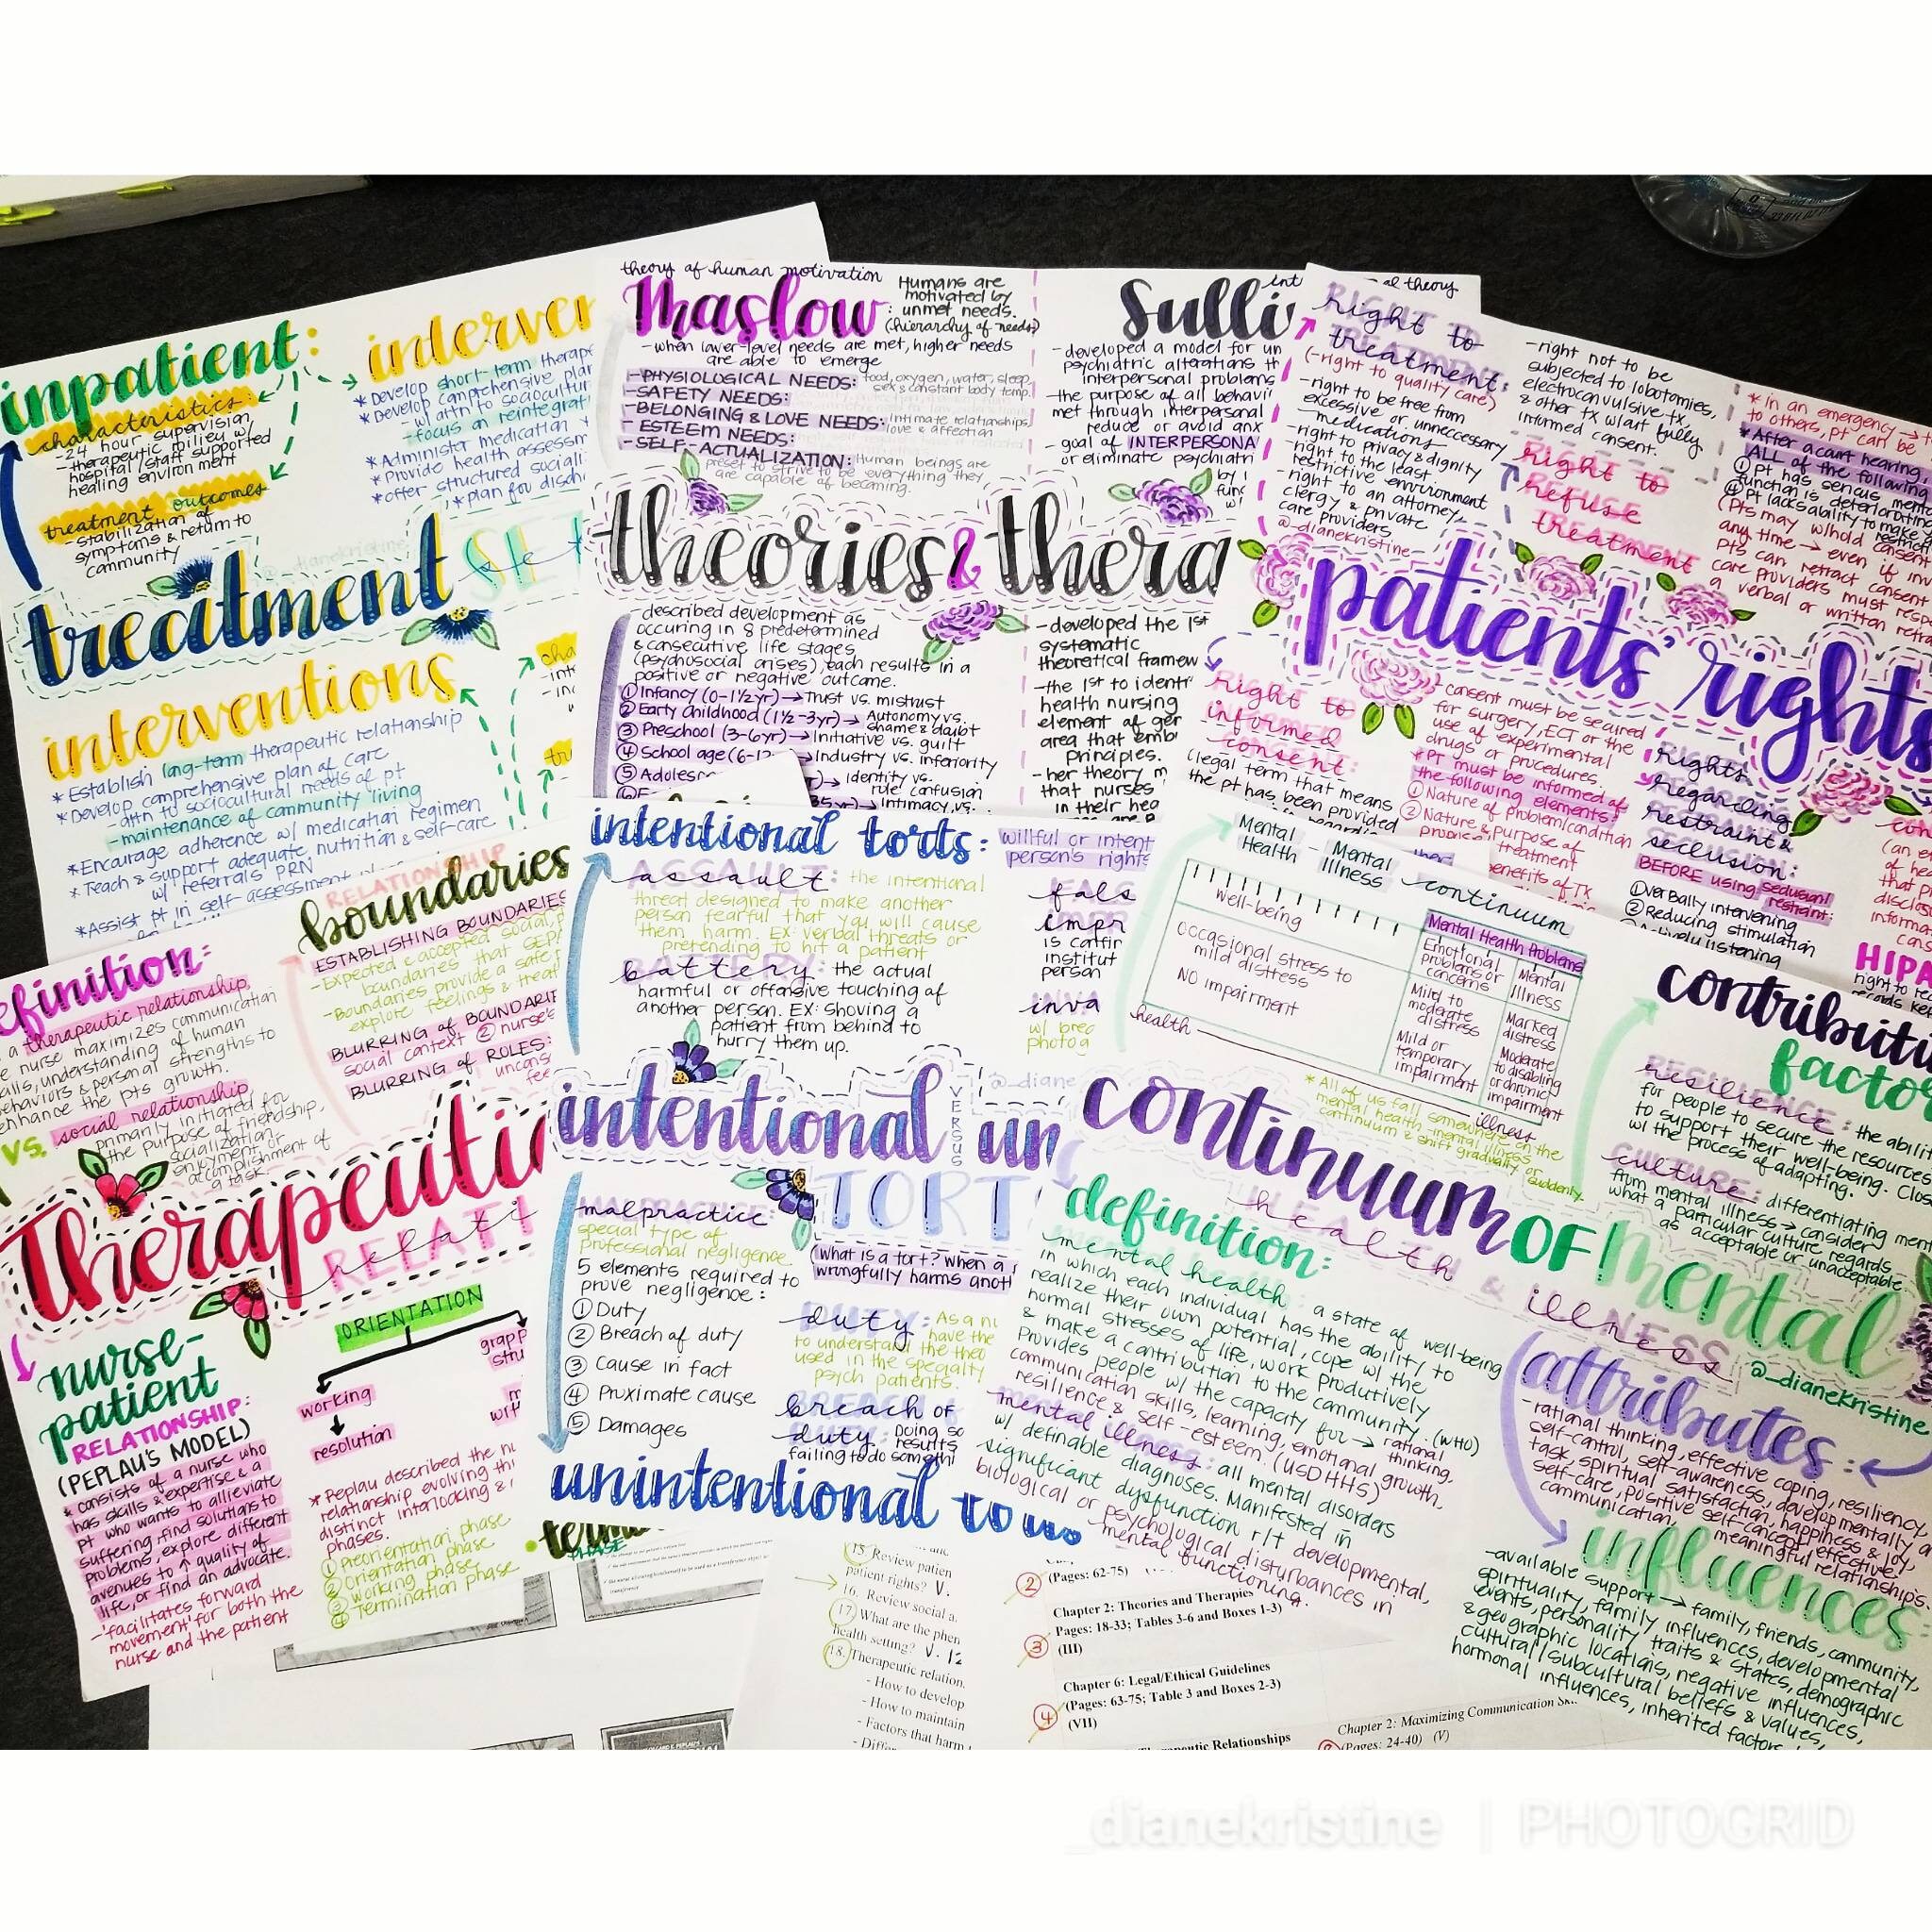 inpatient:
characteristics:
-24 hour supervision,
-therapeutic milieu w/
hospital/staff supported
healing environment
treatment outcomes
-stabilization of
symptoms & return to
community
interven
*Develop short-term therap
*Develop comprehensive plan
w/ attn to sociocultur
-focus on reintegrat
*Administer medication
*Provide health assessm
*offer structured sociali
*plan for disch
treatment
interventions
*Establish long-term therapeutic relationship
*Develop comprehensive plan of care
-attn to sociocultural needs of pt
-maintenance of community living
*Encourage adherence w/ medication regimen
*Teach & support adequate nutrition & self-care
w/ referrals PRN
*Assist pt in self-assessment
theory of human motivation
Maslow: Humans are
motivated by
unmet needs.
(hierarchy of needs)
-when lower-level needs are met, higher needs
are able to emerge
-PHYSIOLOGICAL NEEDS: food, oxygen, water, sleep,
sex & constant body temp.
-SAFETY NEEDS:
-BELONGING & LOVE NEEDS: Intimate relationships,
love & affection
-ESTEEM NEEDS:
-SELF-ACTUALIZATION: Human beings are
preset to strive to be everything they
are capable of becoming.
Sulli
-developed a model for un
psychiatric alterations th
interpersonal problems
-the purpose of all behavi
met through interpersonal
reduce or avoid anx
-goal of INTERPERSONA
or eliminate psychiatri
theories & thera
-described development as
occuring in 8 predetermined
& consecutive life stages
(psychosocial crises), each results in a
positive or negative outcome.
① Infancy (0-1½yr) → Trust vs. mistrust
② Early childhood (1½-3yr) → Autonomy vs.
shame & doubt
③ Preschool (3-6yr) → Initiative vs. guilt
④ School age (6-12 Industry vs. inferiority
⑤ Adolesc Identity vs.
role confusion
35yr) → Intimacy vs.
-developed the 1st
systematic
theoretical framew
-the 1st to identi
health nursing
element of gen
area that emb
principles.
-her theory m
that nurses
in their hea
right to
treatment:
(-right to quality care)
-right to be free from
excessive or unnecessary
medications-
-right to privacy & dignity
-right to the least
restrictive environment
-right to an attorney,
clergy & private
care providers.
@_dianekristine-
-right not to be
subjected to lobotomies,
electroconvulsive tx,
& other tx w/out fully
informed consent.
right to
refuse
treatment
*In an emergency →
to others, pt can be
*After a court hearing,
ALL of the following
① Pt has serious menta
function is deterioratin
④ Pt lacks ability to make
(Pts may w/hold consent
any time → even if inv
Pts can retract consent
care providers must resp
a verbal or written retra
patients' rights
right to
informed
consent:
(legal term that means
the pt has been provided
consent must be secured
for surgery, ECT or the
use of experimental
drugs or procedures.
*Pt must be informed of
the following elements:
① Nature of Problem/condition
② Nature & purpose of
treatment
enefits of Tx
Rights
regarding
restraint &
seclusion:
BEFORE using seclusion/
restraint:
① Verbally intervening
② Reducing stimulation
③ Actively listening
HIPA
definition:
a therapeutic relationship,
e nurse maximizes communication
skills, understanding of human
behaviors & personal strengths to
enhance the pts growth.
VS. social relationship
primarily initiated for
the purpose of friendship,
socialization,
enjoyment or
accomplishment of
a task.
RELATIONSHIP
boundaries
ESTABLISHING BOUNDARIES
-Expected & accepted social, p
boundaries that sep
-Boundaries provide a safe
explore feelings & treat
BLURRING of BOUNDARIE
social context ② nurse's
BLURRING of ROLES:
Therapeutic
RELATI
nurse-
patient
RELATIONSHIP:
(PEPLAU'S MODEL)
& consists of a nurse who
has skills & expertise & a
pt who wants to allieviate
suffering, find solutions to
problems, explore different
avenues to ↑ quality of
life, or find an advocate.
-'facilitates forward
movement' for both the
nurse and the patient
ORIENTATION
working
resolution
*Peplau described the nu
relationship evolving thr
distinct interlocking &
phases.
① Preorientation phase
② Orientation phase
③ Working phase
④ Termination phase
intentional torts: willful or intent
person's rights
assault: the intentional
threat designed to make another
person fearful that you will cause
them harm. EX: verbal threats or
pretending to hit a patient
battery: the actual
harmful or offensive touching of
another person. EX: shoving a
patient from behind to
hurry them up.
fals
impr
is confin
institut
person
inva
w/ brea
photog
intentional VERSUS un
TORT
malpractice:
special type of
professional negligence
5 elements required to
prove negligence:
① Duty
② Breach of duty
③ Cause in fact
④ Proximate cause
⑤ Damages
What is a tort? When a
wrongfully harms anoth
duty: As a nu
have the
to understand the theo
used in the specialty
psych patients.
breach of
duty: Doing so
results
failing to do somethi
unintentional to
Mental
Health - Mental
Illness continuum
Well-being
Occasional stress to
mild distress
No impairment
Mental Health Problems
Emotional
problems or
concerns
Mild to
moderate
distress
Mild or
temporary
impairment
Mental
Illness
Marked
distress
Moderate
to disabling
or chronic
impairment
health
illness
*All of us fall somewhere on the
mental health-mental illness
continuum & shift gradually or
suddenly.
continuum OF mental
health & illness
@_dianekristine
definition:
mental health: a state of well-being
in which each individual has the ability to
realize their own potential, cope w/ the
normal stresses of life, work productively
& make a contribution to the community. (WHO)
Provides people w/ the capacity for → rational
thinking,
communication skills, learning, emotional growth,
resilience & self-esteem. (USDHHS)
mental illness: all mental disorders
w/ definable diagnoses. Manifested in
significant dysfunction r/t developmental,
biological or psychological disturbances in
mental functioning.
contributi
factor
resilience: the abilit
for people to secure the resources
to support their well-being. Clos
w/ the process of adapting.
culture: differentiating ment
from mental illness → consider
what a particular culture regards
as acceptable or unacceptable.
attributes:
-rational thinking, effective coping, resiliency,
self-control, self-awareness, developmentally a
task, spiritual satisfaction, happiness & joy,
self-care, positive self-concept, effective
communication, meaningful relationships.
influences:
-available support → family, friends, community,
spirituality, family influences, developmental
events, personality traits & states, demographic
& geographic locations, negative influences,
cultural/subcultural beliefs & values,
hormonal influences, inherited factors
15. Review patien
patient rights? V.
16. Review social a
17. What are the phen
health setting? V. 12
18. Therapeutic relation
- How to develop
- How to maintain
- Factors that harm
② (Pages: 62-75)
Chapter 2: Theories and Therapies
③ Pages: 18-33; Tables 3-6 and Boxes 1-3)
(III)
Chapter 6: Legal/Ethical Guidelines
④ (Pages: 63-75; Table 3 and Boxes 2-3)
(VII)
Relationships
Chapter 2: Maximizing Communication
(Pages: 24-40) (V)
_dianekristine | PHOTOGRID